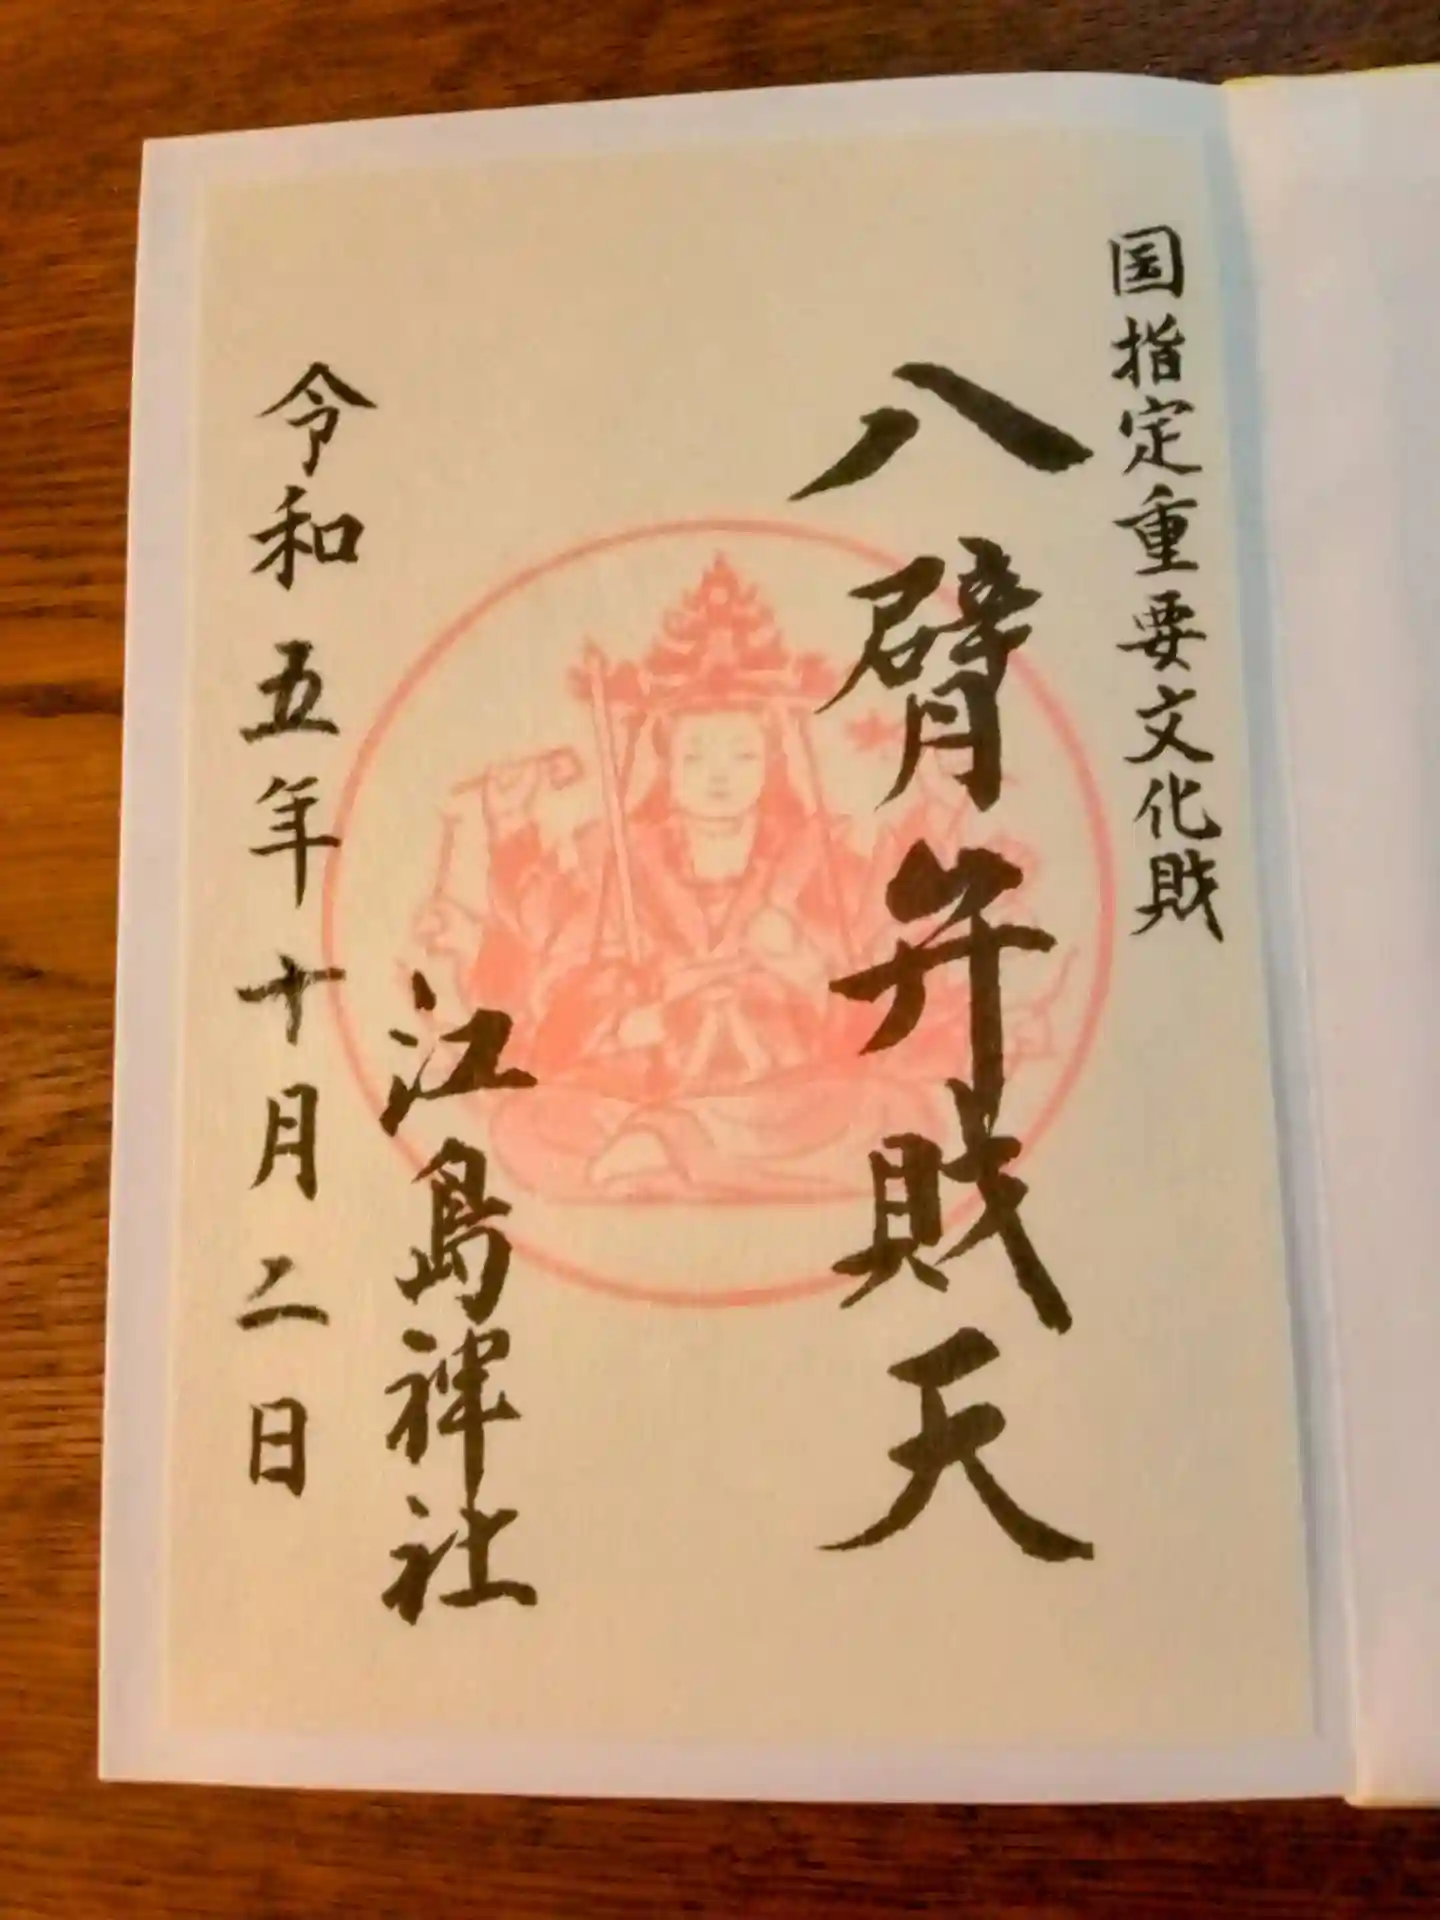 国指定重要文化財
八臂弁財天
江島神社
令和五年十月二日